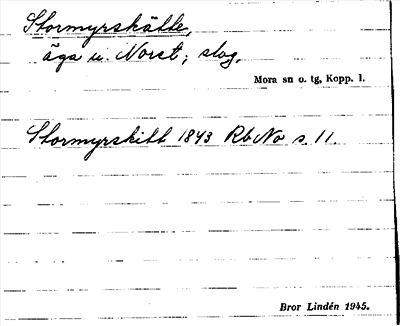 Stormyrskälle,
äga u. Norst, slog.
Mora sn o. tg, Kopp. l.
Stormyrskitt 1843 Rb No s. 11.
Bror Lindén 1945.